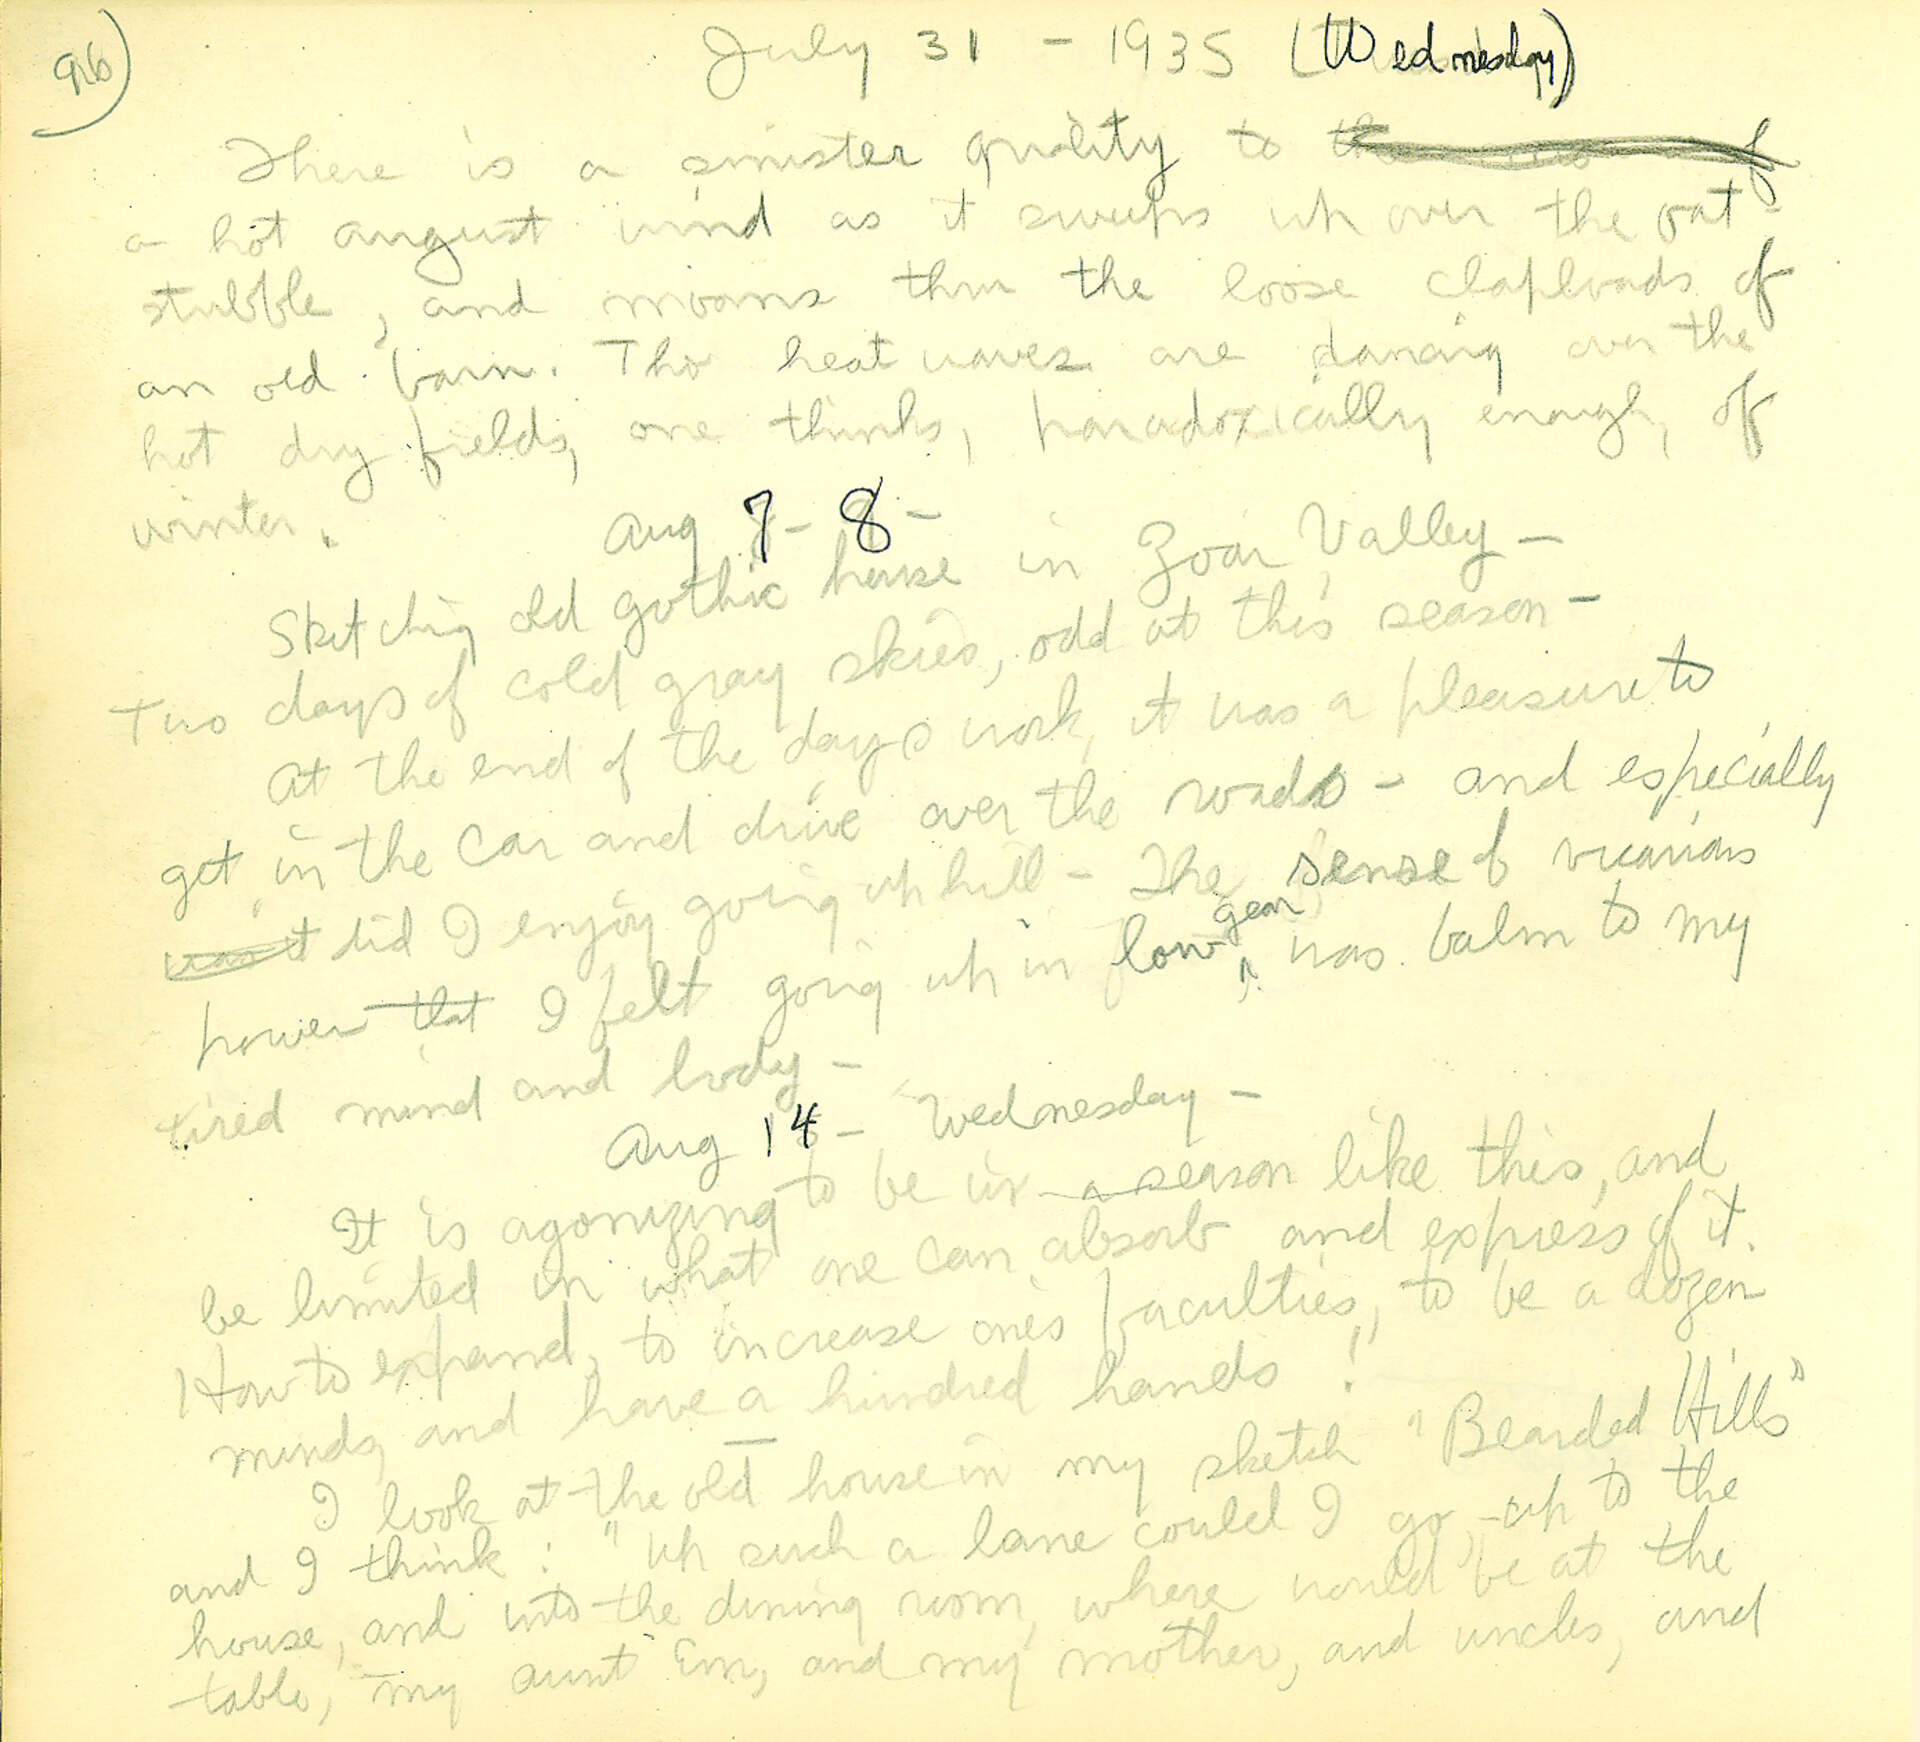 96)
July 31 - 1935 (Wednesday)
There is a sinister quality to
a hot august wind as it sweeps up over the oat-
stubble, and moans thru the loose clapboads of
an old barn. Tho heat waves are dancing over the
hot dry fields, one thinks, paradoxically enough, of
winter.
Aug 7 - 8 -
Sketching old gothic house in Zoar Valley -
Two days of cold gray skies, odd at this season -
At the end of the days work, it was a pleasure to
get in the car and drive over the roads - and especially
did I enjoy going up hill - The sense of vicarious
power that I felt going up in low gear, was balm to my
tired mind and body -
Aug 14 - Wednesday -
It is agonizing to be in a season like this, and
be limited in what one can absorb and express of it.
How to expand, to increase ones faculties, to be a dozen
minds, and have a hundred hands!
I look at the old house in my sketch "Bearded Hills"
and I think: "up such a lane could I go, - up to the
house, and into the dining room, where would be at the
table, my aunt Em, and my mother, and uncles, and